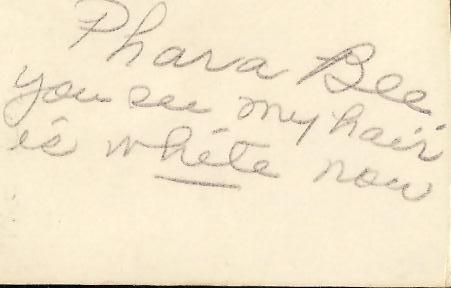 Phara Bee
you see my hair
is white now